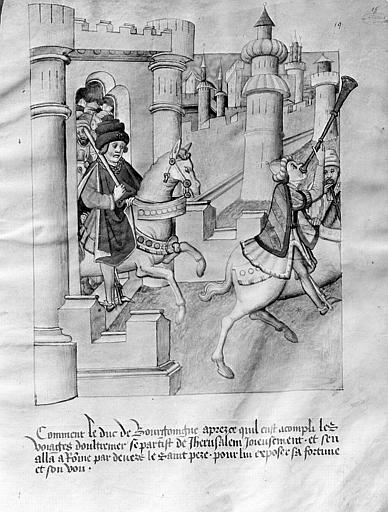 19
Comment le duc de Bourgoingne aprezce quil eust acompli les
voiages doultremer se partist de Jherusalem Joieusement · et sen
alla a Rome par devers le saint peze · pour lui exposer sa fortune
et son vou ·